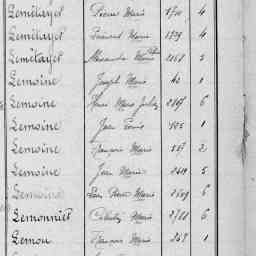 Lemétayer Pierre Marie 1710 4
Lemétayer Marie 1729 4
Lemétayer Alexandre Marie 2058 5
Lemoine Joseph Marie 40 1
Lemoine Marie 2867 6
Lemoine Jean Louis 105 1
Lemoine François Marie 557 2
Lemoine Jean Marie 2419 5
Lemoine Marie 2569 6
Lemonnier Marie 2788 6
Lemou François Marie 247 1